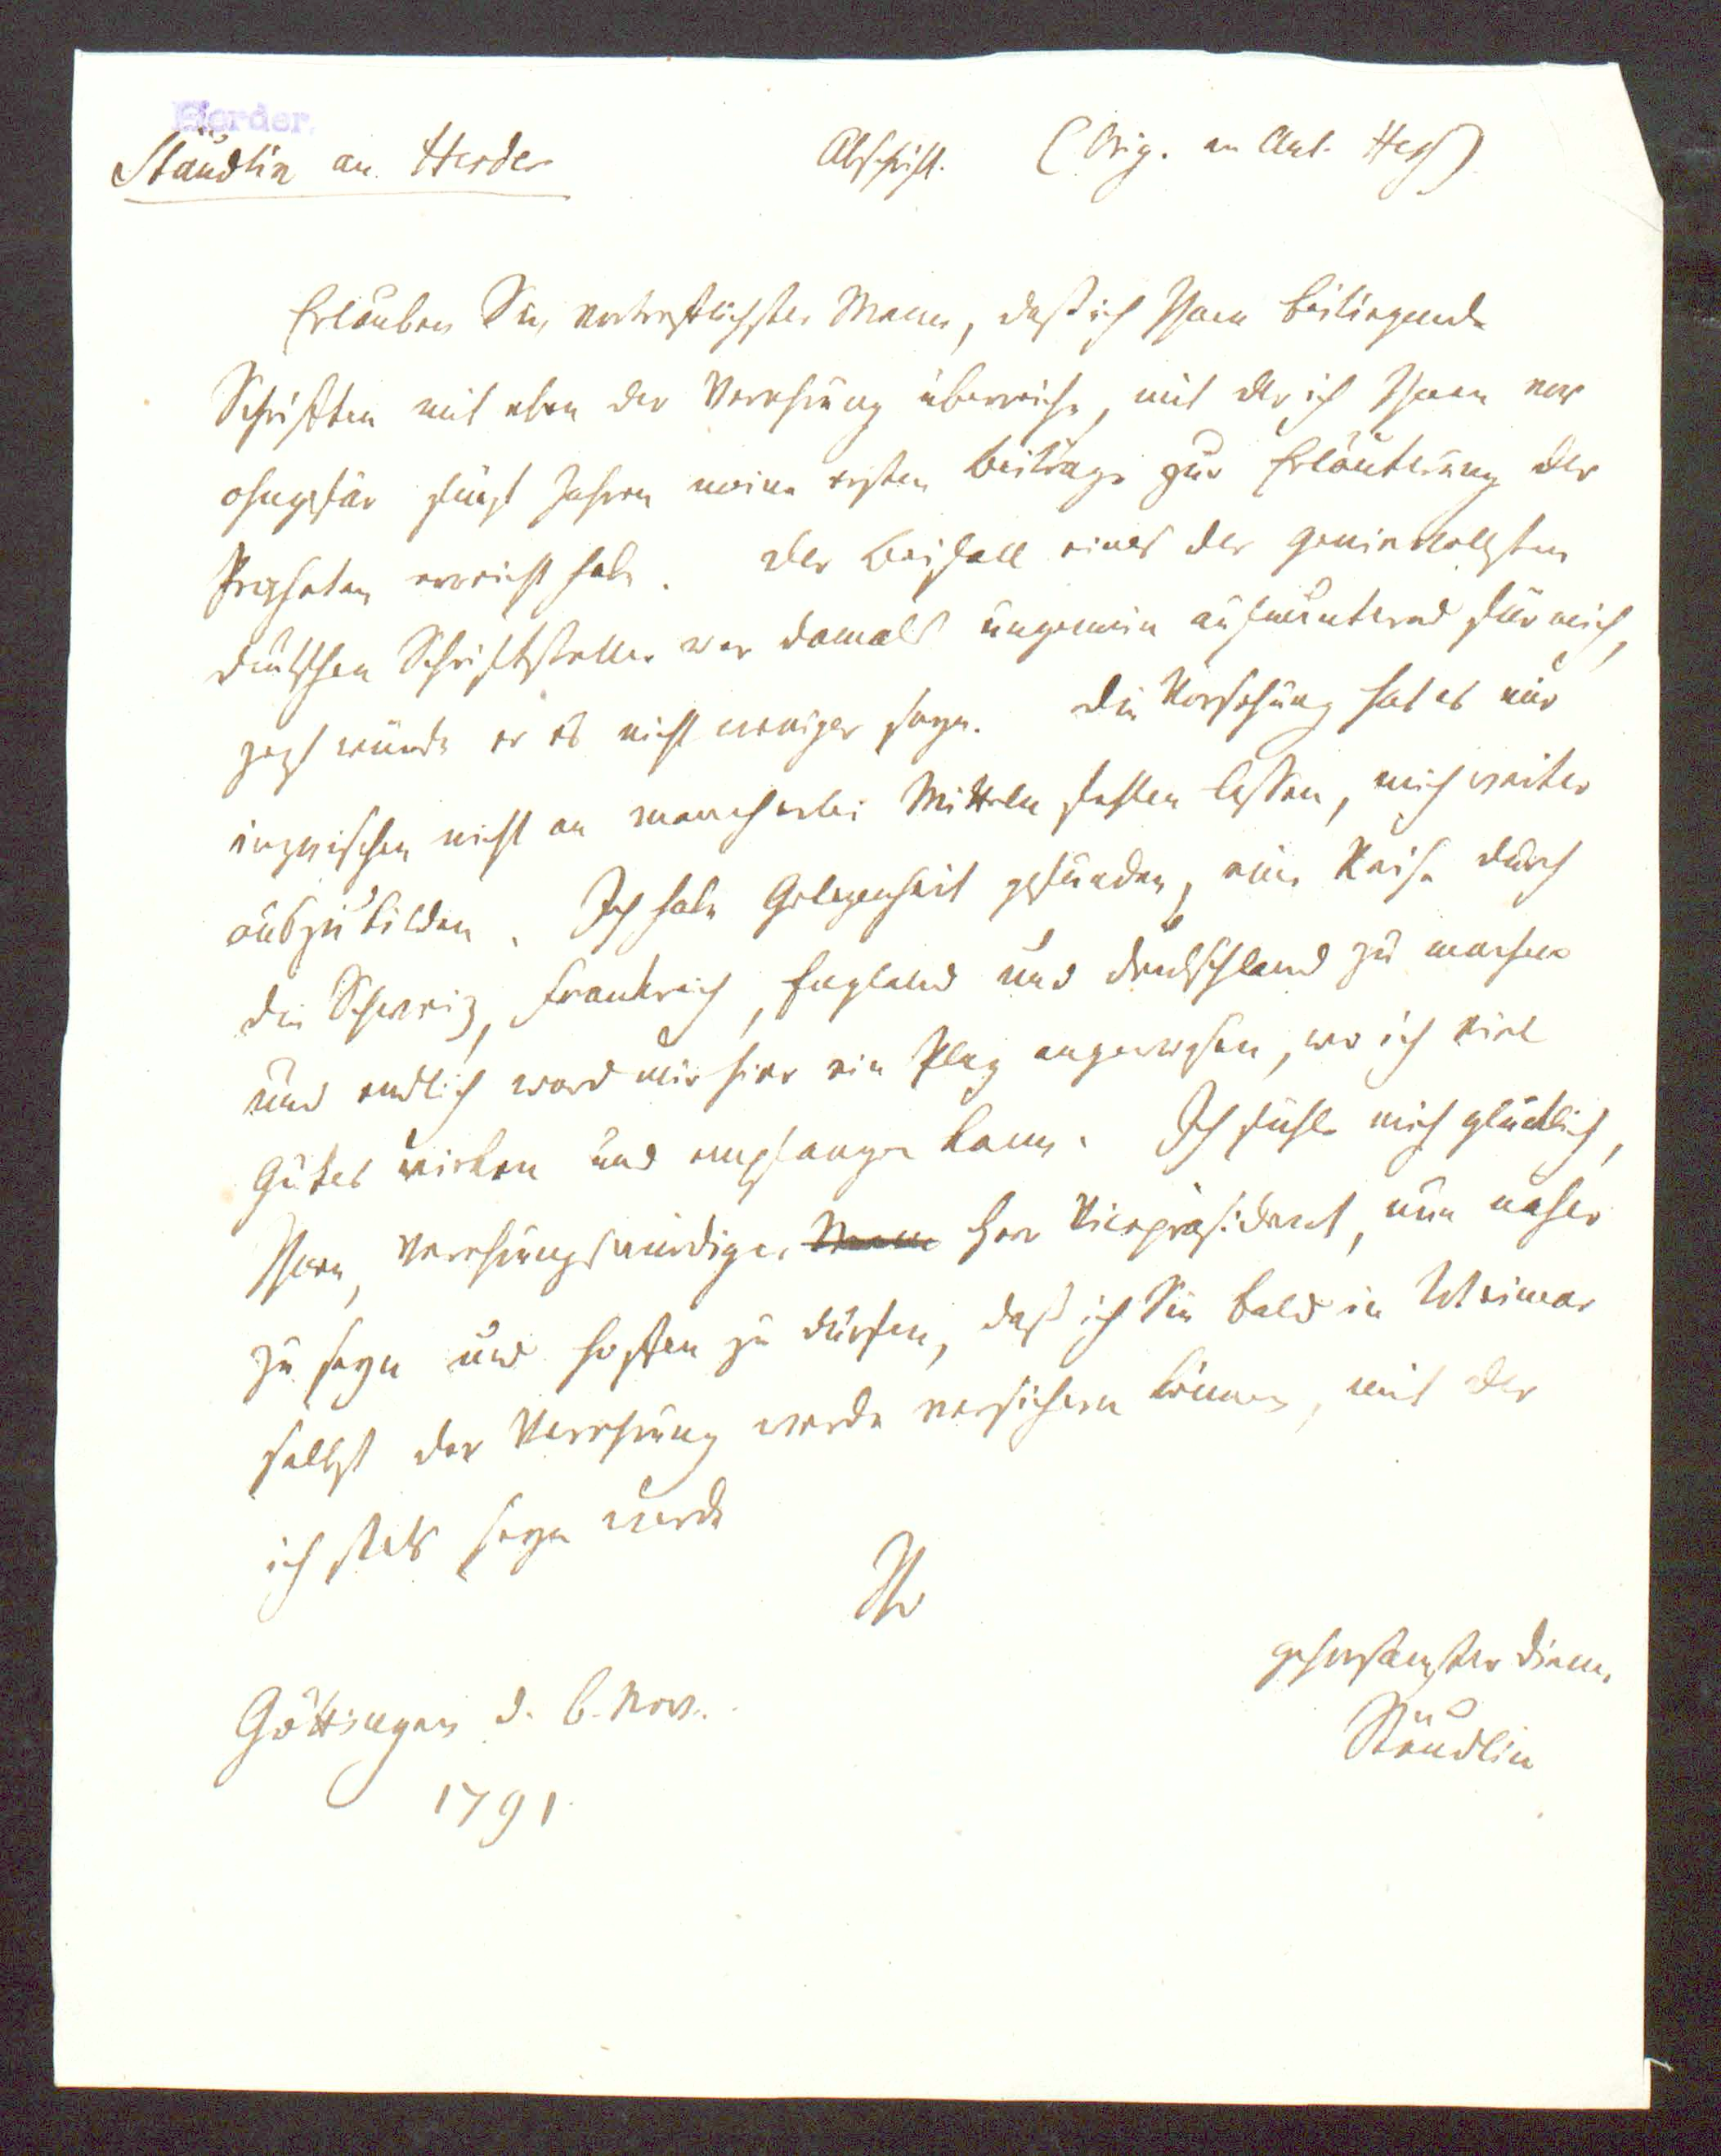 Herder.
Stäudlin an Herder Abschrift. (Orig. an Ant. Heß)
Erlauben Sie, vortreflichster Mann, daß ich Ihnen beiliegende
Schriften mit eben der Verehrung überreiche, mit der ich Ihnen vor
ohngefär fünf Jahren meine ersten Beiträge zur Erläuterung der
Propheten überreicht habe. Der Beifall eines der genievollsten
deutschen Schriftsteller war damals ungemein aufmunternd für mich,
jezt würde er es nicht weniger seyn. Die Vorsehung hat es mir
inzwischen nicht an mancherlei Mitteln fehlen lassen, mich weiter
auszubilden. Ich habe Gelegenheit gefunden, eine Reise durch
die Schweiz, Frankreich, England und Deutschland zu machen
und endlich ward mir hier ein Plaz angewiesen, wo ich viel
Gutes wirken und empfangen kann. Ich fühle mich glücklich,
Ihnen, Verehrungswürdiger Mann Herr Vicepräsident, nun näher
zu seyn und hoffen zu dürfen, daß ich Sie bald in Weimar
selbst der Verehrung werde versichern können, mit der
ich stets seyn werde
Ihr
gehorsamster Diener
Göttingen d. 6. Nov.
Stäudlin
1791